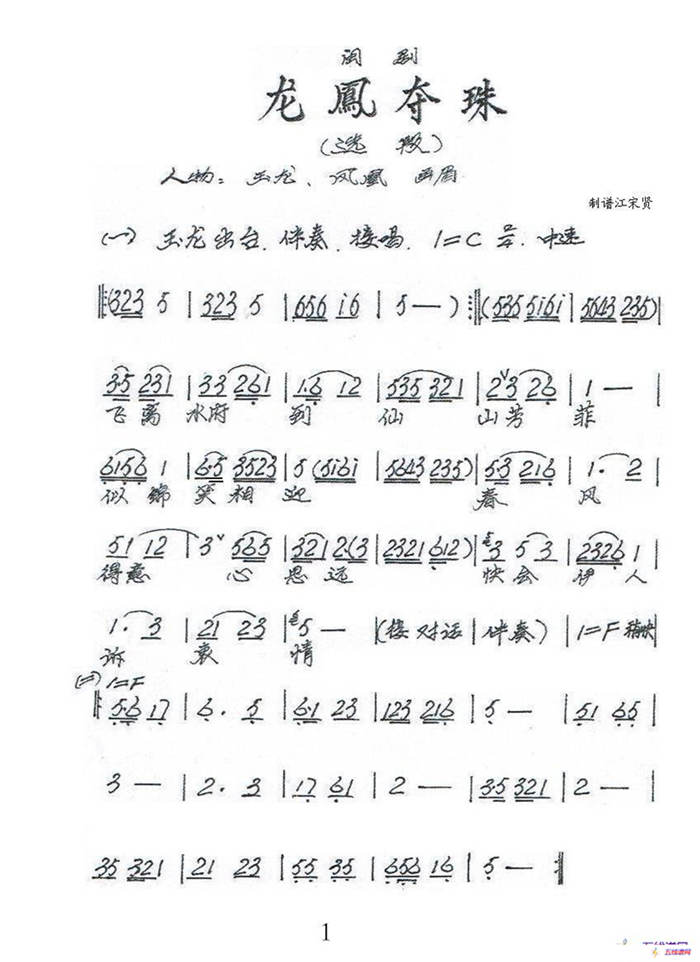 闽剧
龙鳳夺珠
(选段)
人物：玉龙、凤凰 画眉
制谱江宋贤
(一) 玉龙出台、伴奏、接唱、1=C 2/4、中速
(323 5 | 323 5 | 656 i6 | 5 — ) :‖: (535 5i6i | 5643 235) |
3·5 231 | 33 261 | 1·6 12 | 535 321 | 2ˇ3 226 | 1 — |
飞离 水府 到 仙 山芳 菲
6156 1 | 6·5 3523 | 5 (5i6i | 5643 235) | 5·3 216 | 1· 2 |
似锦 笑相 迎 春 风
51 12 | 3ˇ 565 | 3212 2·(3 | 2321 612) | 3 5 3 | 2326 1 |
得意 心 思远 快会 伊人
1· 3 | 21 23 | 5 — | (接对话 | 伴奏) | 1=F 稍快
诉 衷 情
(二) 1=F
‖: 5·6 17 | 6· 5 | 6·1 23 | 123 216 | 5 — | 51 65 |
3 — | 2· 3 | 17 61 | 2 — | 3·5 321 | 2 — |
35 321 | 21 23 | 55 35 | 656 16 | 5 — :‖
1
五线谱网